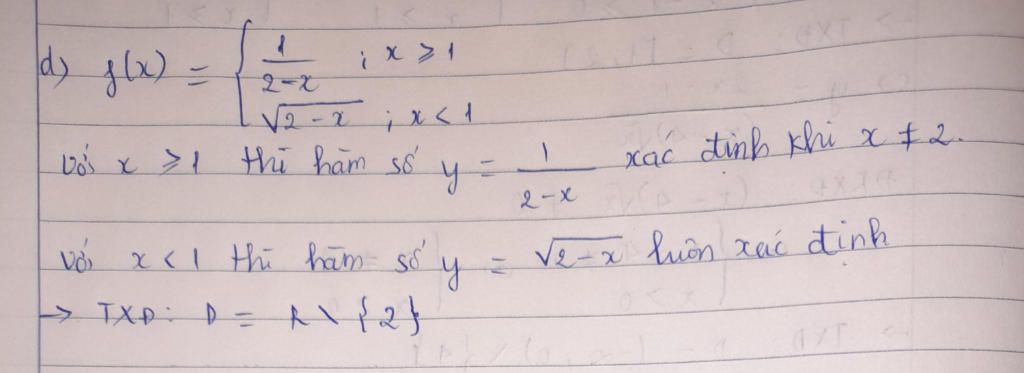 d) f(x) = { 1/(2-x) ; x ⩾ 1
√(2-x) ; x < 1
Với x ⩾ 1 thì hàm số y = 1/(2-x) xác định khi x ≠ 2.
Với x < 1 thì hàm số y = √(2-x) luôn xác định
→ TXĐ: D = R \ {2}